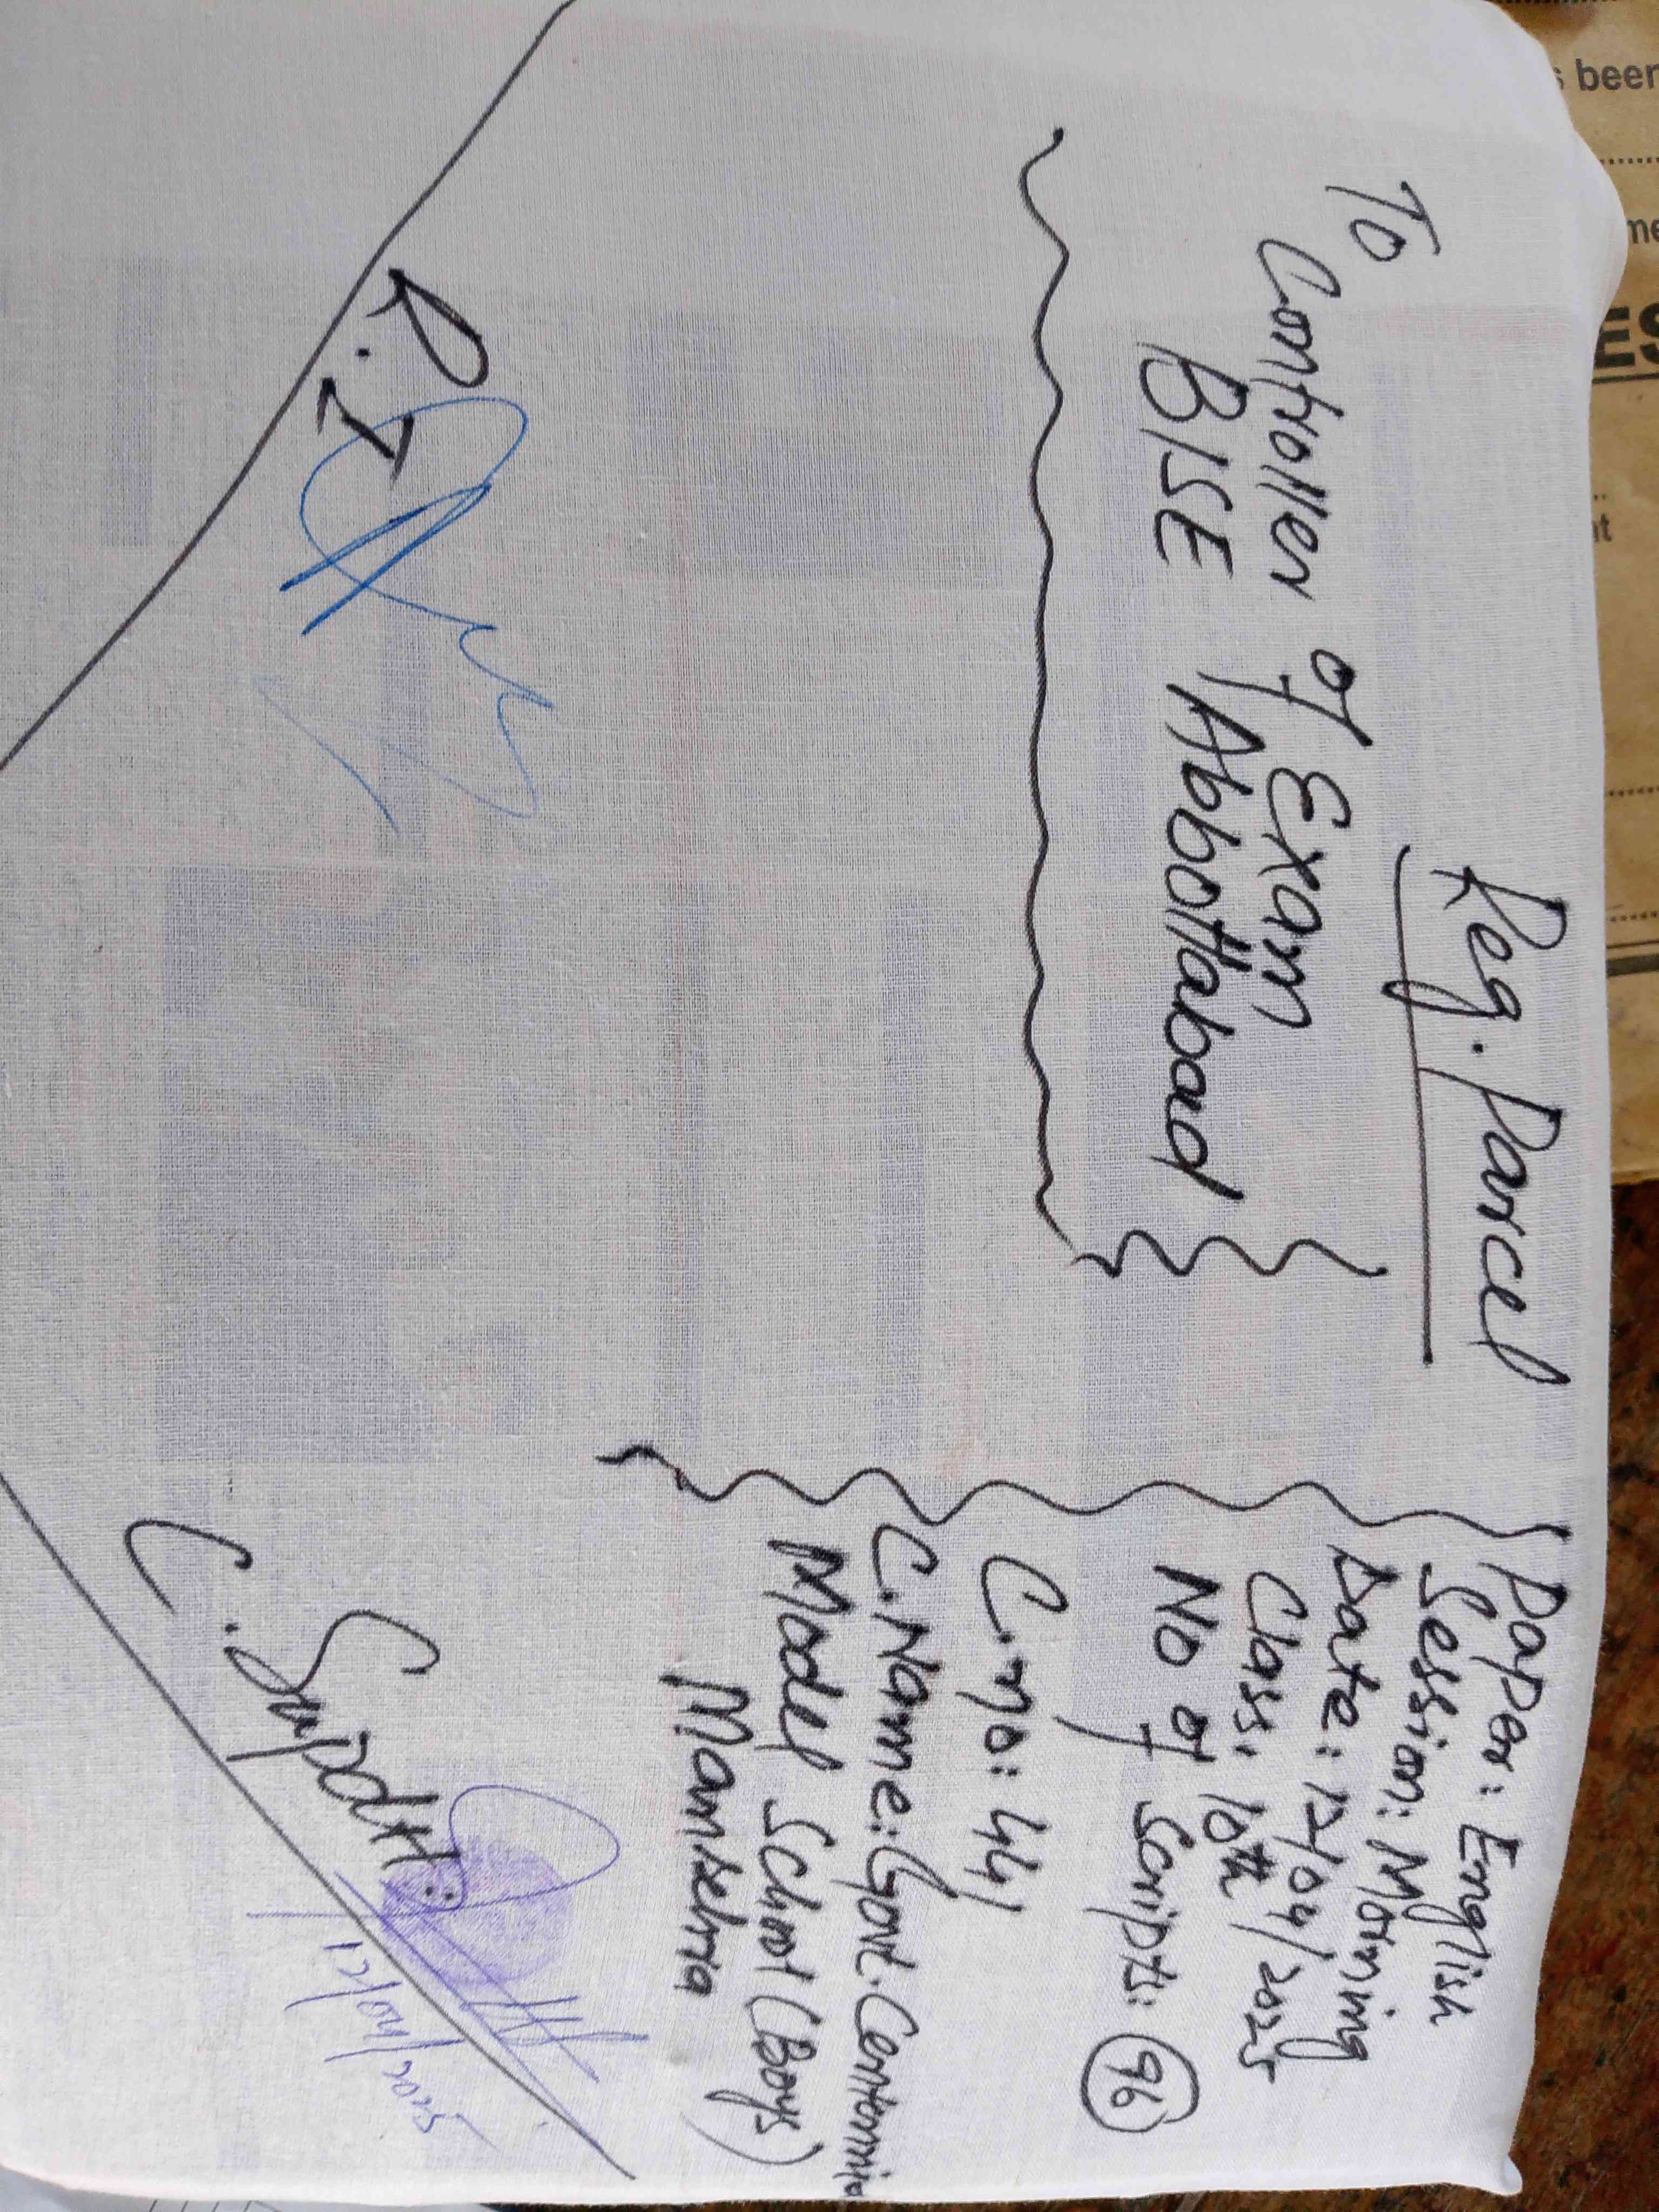 Reg. Parcel
To
Controller of Exam
BISE Abbottabad
Paper: English
Session: Morning
Date: 12/04/2025
Class: 10th
No of Scripts: 96
C.no: 441
C.Name: Govt. Centennial
Model School (Boys)
Mansehra
R.I
C.Supdtt:
12/04/2025
been
ES